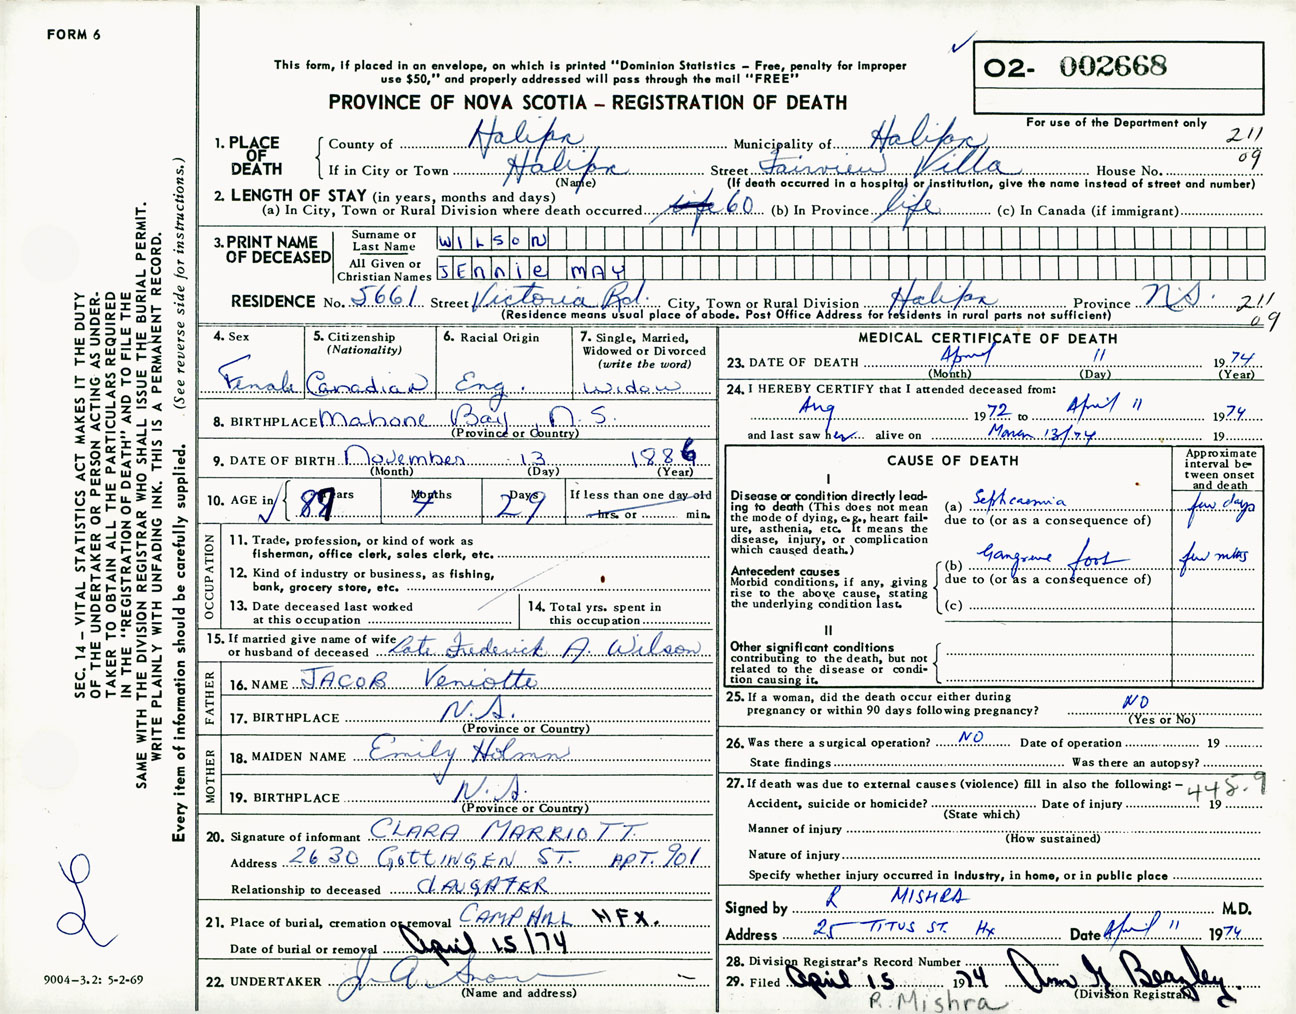 FORM 6
This form, if placed in an envelope, on which is printed "Dominion Statistics – Free, penalty for improper
use $50," and properly addressed will pass through the mail "FREE"
PROVINCE OF NOVA SCOTIA – REGISTRATION OF DEATH
02- 002668
For use of the Department only
211
09
SEC. 14 – VITAL STATISTICS ACT MAKES IT THE DUTY
OF THE UNDERTAKER OR PERSON ACTING AS UNDER-
TAKER TO OBTAIN ALL THE PARTICULARS REQUIRED
IN THE "REGISTRATION OF DEATH" AND TO FILE THE
SAME WITH THE DIVISION REGISTRAR WHO SHALL ISSUE THE BURIAL PERMIT.
WRITE PLAINLY WITH UNFADING INK. THIS IS A PERMANENT RECORD.
Every item of information should be carefully supplied. (See reverse side for instructions.)
1. PLACE OF DEATH
County of Halifax Municipality of Halifax
If in City or Town Halifax Street Fairview Villa House No.
(Name) (If death occurred in a hospital or institution, give the name instead of street and number)
2. LENGTH OF STAY (in years, months and days)
(a) In City, Town or Rural Division where death occurred life 60 (b) In Province life (c) In Canada (if immigrant)
3. PRINT NAME OF DECEASED
Surname or Last Name WILSON
All Given or Christian Names JENNIE MAY
RESIDENCE No. 5661 Street Victoria Rd. City, Town or Rural Division Halifax Province N.S. 211
09
(Residence means usual place of abode. Post Office Address for residents in rural parts not sufficient)
4. Sex
Female
5. Citizenship
(Nationality)
Canadian
6. Racial Origin
Eng.
7. Single, Married,
Widowed or Divorced
(write the word)
Widow
8. BIRTHPLACE Mahone Bay N.S.
(Province or Country)
9. DATE OF BIRTH November 13 1886
(Month) (Day) (Year)
10. AGE in Years 87 Months 4 Days 29 If less than one day old
hrs. or min.
OCCUPATION
11. Trade, profession, or kind of work as
fisherman, office clerk, sales clerk, etc.
12. Kind of industry or business, as fishing,
bank, grocery store, etc.
13. Date deceased last worked
at this occupation
14. Total yrs. spent in
this occupation
15. If married give name of wife
or husband of deceased Late Frederick A. Wilson
FATHER
16. NAME JACOB Veniotte
17. BIRTHPLACE N.S.
(Province or Country)
MOTHER
18. MAIDEN NAME Emily
19. BIRTHPLACE N.S.
(Province or Country)
20. Signature of informant CLARA MARRIOTT.
Address 2630 GOTTINGEN ST. APT. 901
Relationship to deceased DAUGHTER
21. Place of burial, cremation or removal CAMPHILL HFX.
Date of burial or removal April 15/74
22. UNDERTAKER J. A. Snow
(Name and address)
MEDICAL CERTIFICATE OF DEATH
23. DATE OF DEATH April 11 1974
(Month) (Day) (Year)
24. I HEREBY CERTIFY that I attended deceased from:
Aug 1972 to April 11 1974
and last saw her alive on March 13/74 19
CAUSE OF DEATH
Approximate
interval be-
tween onset
and death
I
Disease or condition directly lead-
ing to death (This does not mean
the mode of dying, e.g., heart fail-
ure, asthenia, etc. It means the
disease, injury, or complication
which caused death.)
(a) Septicaemia few days
due to (or as a consequence of)
(b) Gangrene foot few mths
due to (or as a consequence of)
(c)
Antecedent causes
Morbid conditions, if any, giving
rise to the above cause, stating
the underlying condition last.
II
Other significant conditions
contributing to the death, but not
related to the disease or condi-
tion causing it.
25. If a woman, did the death occur either during
pregnancy or within 90 days following pregnancy? NO
(Yes or No)
26. Was there a surgical operation? NO Date of operation 19
State findings Was there an autopsy?
27. If death was due to external causes (violence) fill in also the following: – 445.9
Accident, suicide or homicide? Date of injury 19
(State which)
Manner of injury
(How sustained)
Nature of injury
Specify whether injury occurred in Industry, in home, or in public place
Signed by R MISHRA M.D.
Address 25 TITUS ST. Hx Date April 11 1974
28. Division Registrar's Record Number
29. Filed April 15 1974 Ann G Beazley.
(Division Registrar)
R. Mishra
26
9004–3.2: 5-2-69